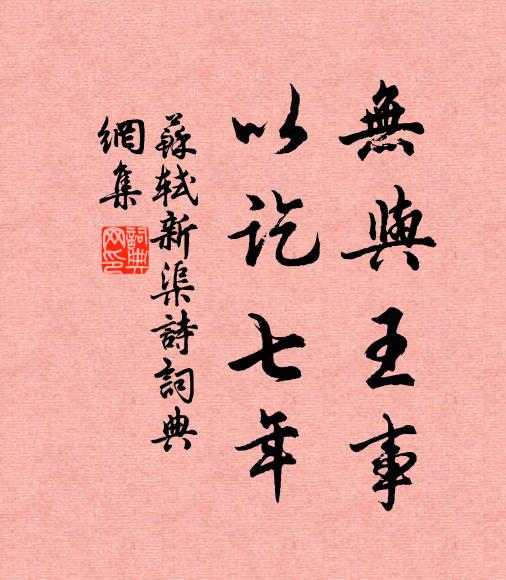 無與王事
以訖七年
蘇軾新渠詩詞典
網集
詞典
网印